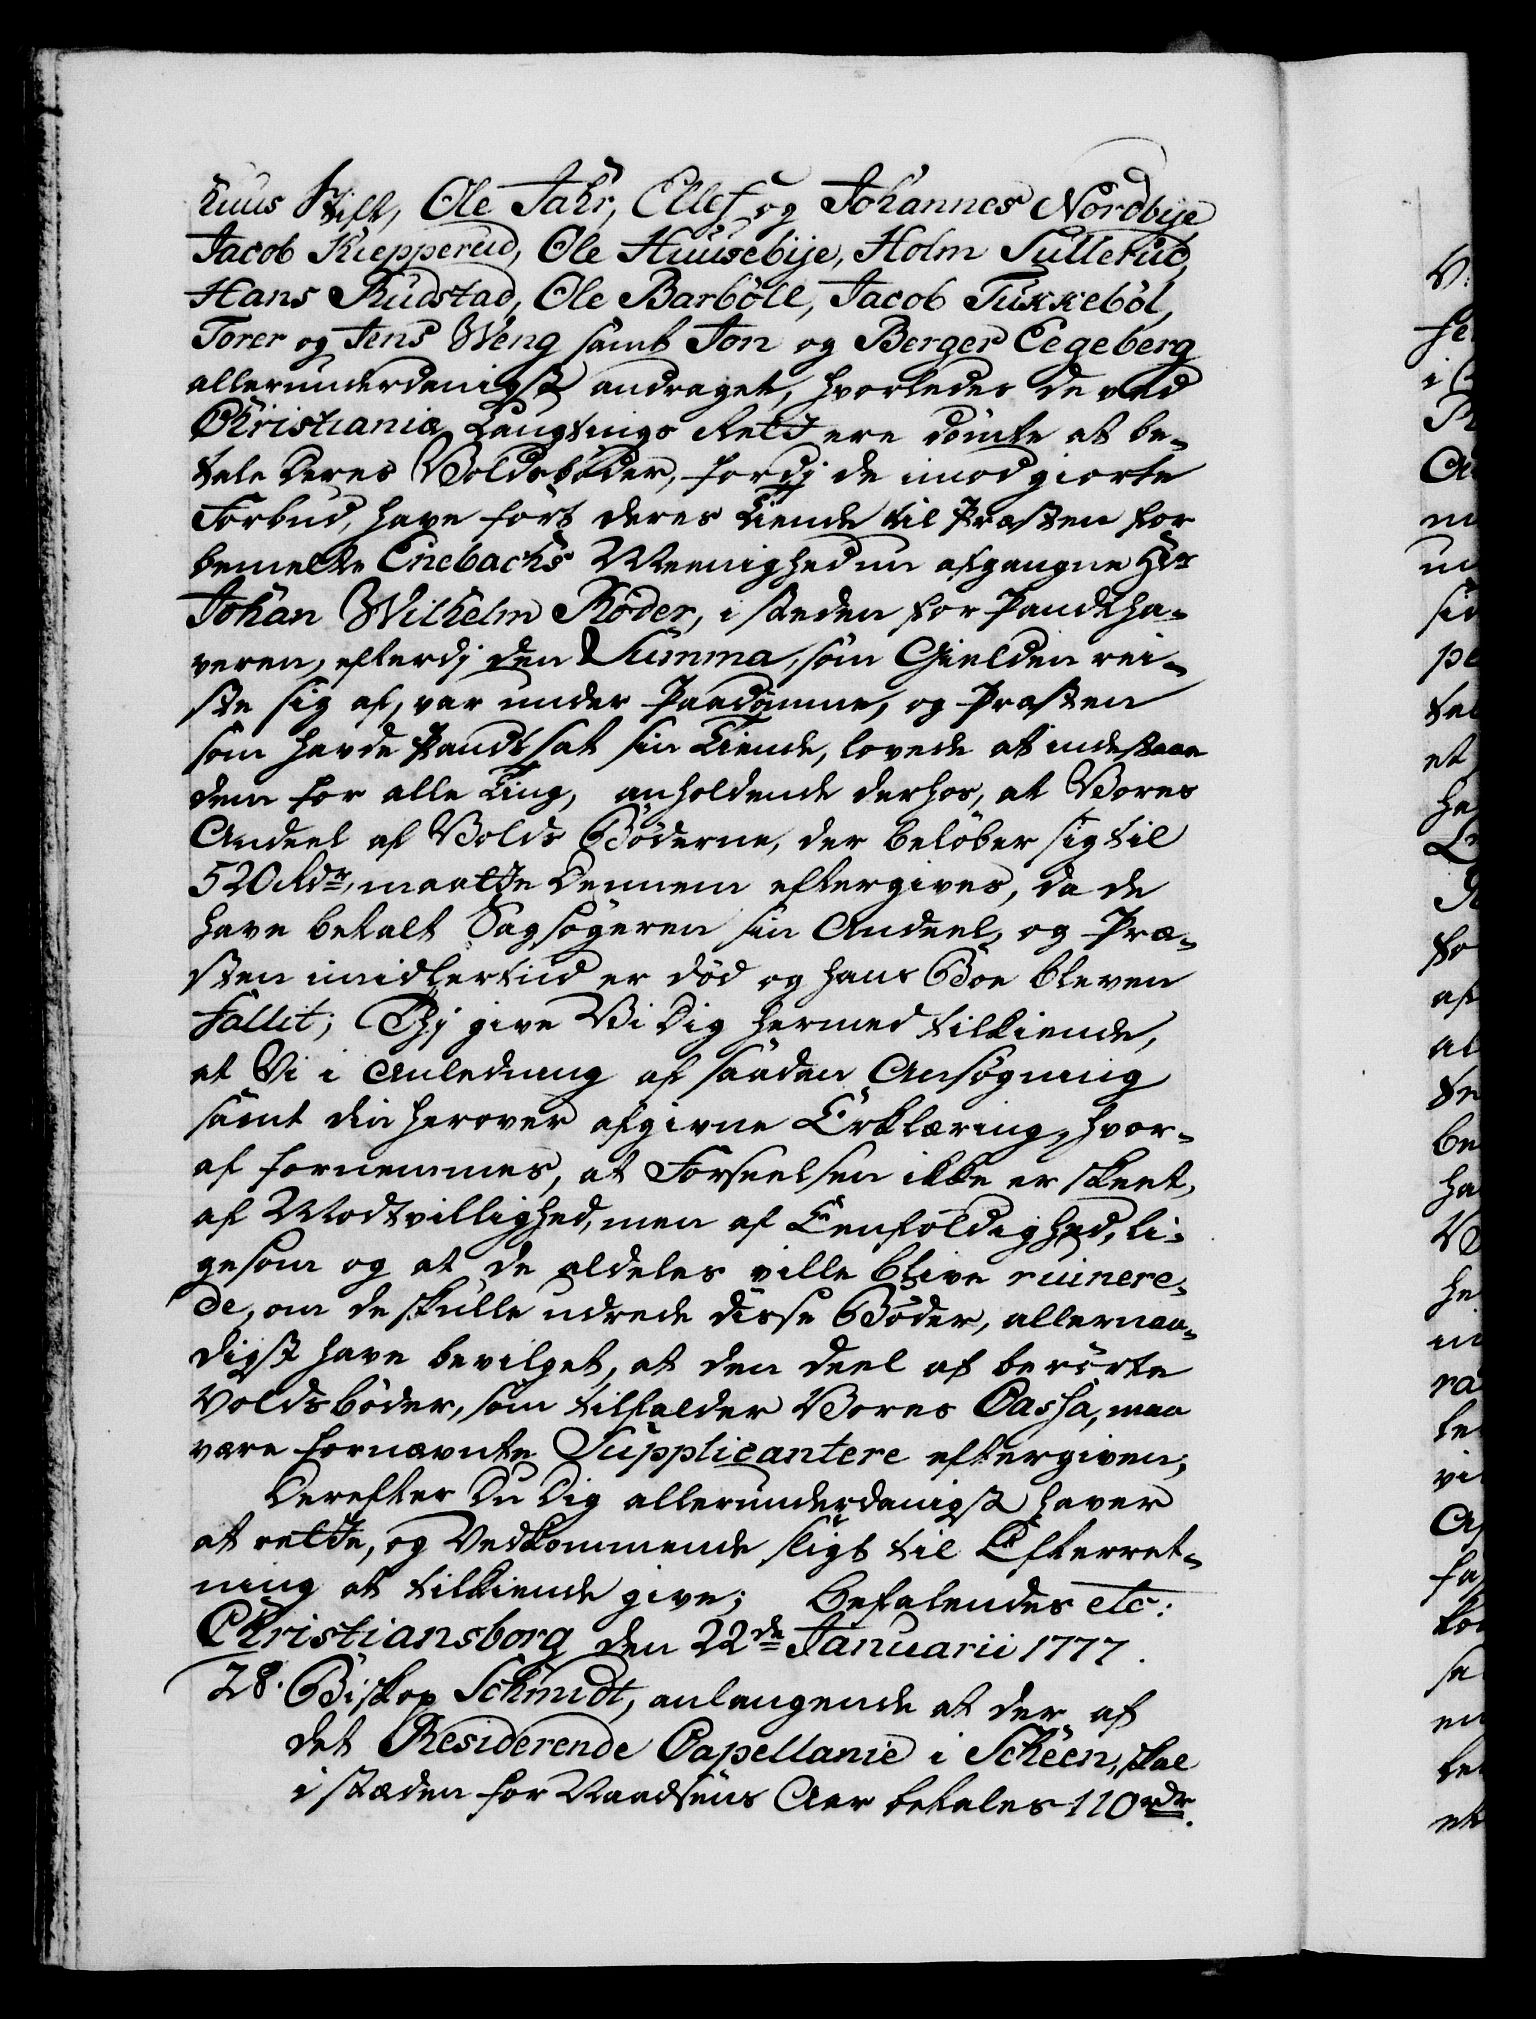 huus Stift, Ole Jahr, Ellef og Johannes Nordbye
Jacob Kiepperud, Ole Huusebye, Holm Tullerud,
Hans Rudstad, Ole Barböll, Jacob Tukkeböl,
Torer og Jens Weng samt Jon og Berger Eegeberg
allerunderdanigst andraget, hvorledes de ved
Christiania Laugtings Rett ere dömte at be-
tale deres Voldsböder, fordj de imod giorte
Forbud, have fört deres Tiende til Præsten for
bemelte Enebachs Meenighed nu afgangne Hr
Johan Wilhelm Röder, i steden for Pandtha-
veren, efterdj den Summa, som Gielden rei-
ste sig af, var under Paadömme, og Præsten
som havde Pandtsat sin Tiende, lovede at indestaae
dem for alle Ting, anholdende derhos, at Vores
Andeel af Volds Böderne, der belöber sig til
520 Rdr, maatte dennem eftergives, da de
have betalt Sagsögeren sin Andeel, og Præ-
sten imidlertiid er död og hans Boe bleven
fallit; Thj give Vi Dig hermed tilkiende,
at Vi i Anledning af saadan Ansögning
samt din herover afgivne Erklæring, hvor-
af fornemmes, at Forseelsen ikke er skeet,
af Modtvillighed, men af Eenfoldighed, li-
gesom og at de aldeles ville blive ruinere-
de, om de skulle udrede disse Böder, allernaa-
digst have bevilget, at den deel af berörte
Voldsböder, som tilfalder Vores Cassa, maa
være fornævnte Supplicantere eftergiven;
Derefter Du Dig allerunderdanigst haver
at rette, og Vedkommende sligt til Efterret-
ning at tilkiende give; Befalendes etc:
Christiansborg den 22de Januarii 1777.
28. Biskop Schmidt, anlangende at der af
det Residerende Capellanie i Scheen, skal
i stæden for Naadsens Aar betales 110 rdr.